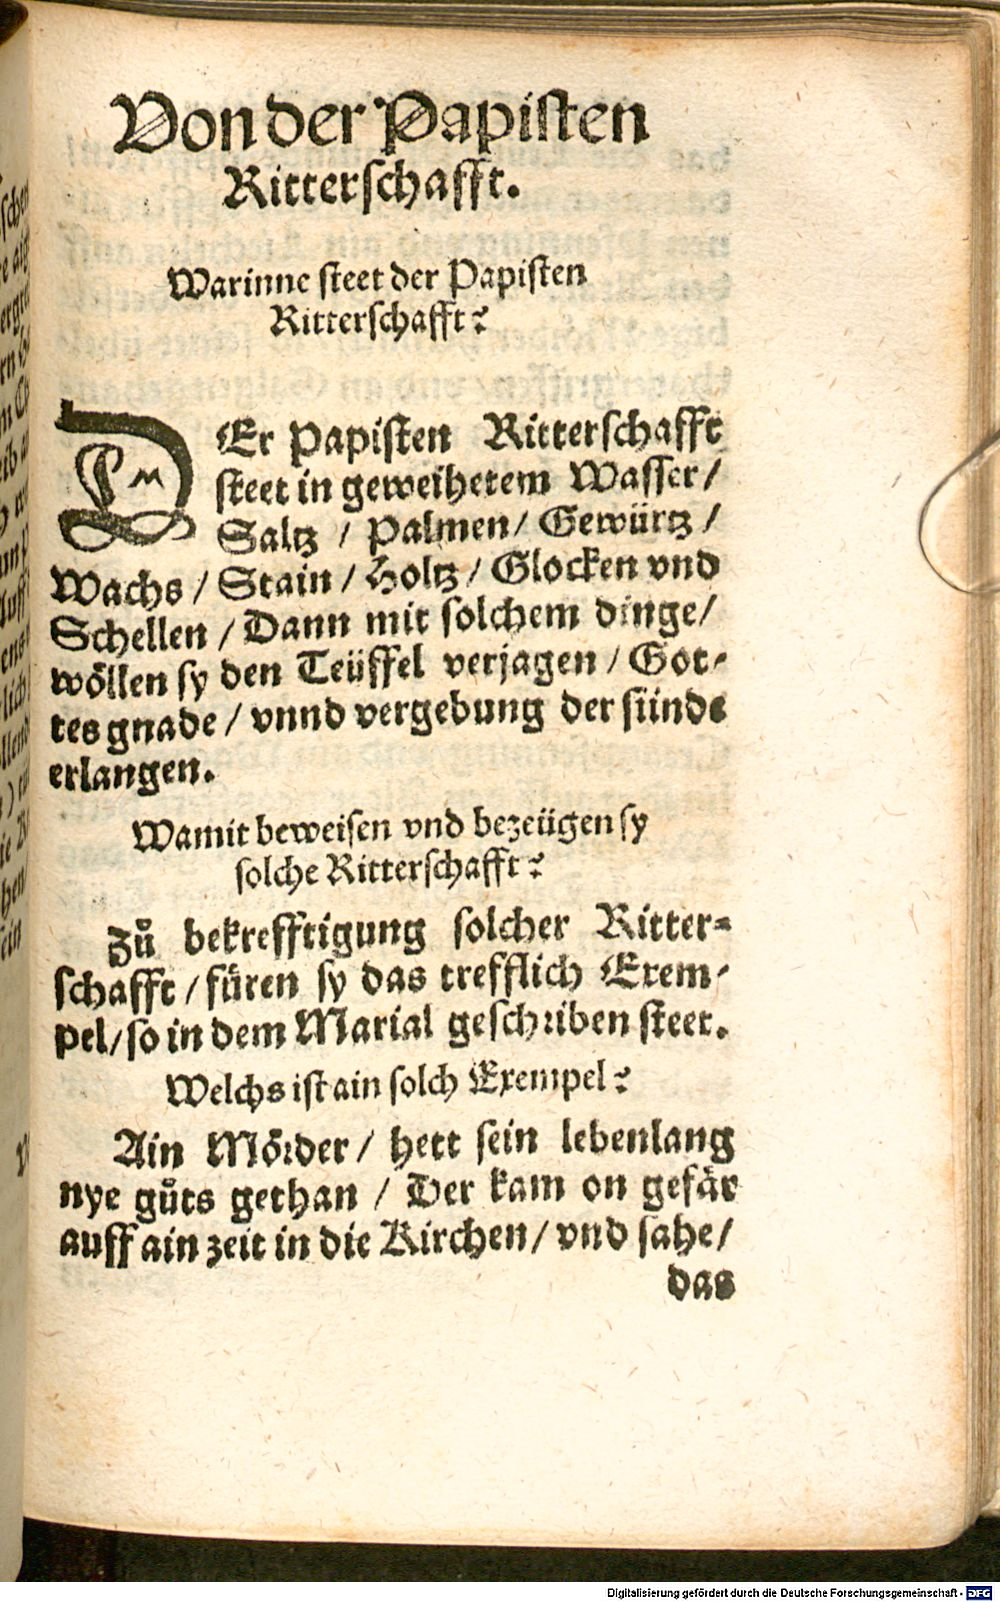 Von der Papisten
Ritterschafft.
Warinne steet der Papisten
Ritterschafft?
DEr Papisten Ritterschafft
steet in geweihetem Wasser/
Saltz / Palmen/ Gewürtz /
Wachs / Stain / Holtz / Glocken vnd
Schellen / Dann mit solchem dinge/
wöllen sy den Teüffel verjagen / Got-
tes gnade / vnnd vergebung der sünde
erlangen.
Wamit beweisen vnd bezeügen sy
solche Ritterschafft?
Zů bekrefftigung solcher Ritter-
schafft / füren sy das trefflich Exem-
pel/ so in dem Marial geschriben steet.
Welchs ist ain solch Exempel?
Ain Mörder / hett sein lebenlang
nye gůts gethan / Der kam on gefär
auff ain zeit in die Kirchen/ vnd sahe/
das
Digitalisierung gefördert durch die Deutsche Forschungsgemeinschaft - DFG